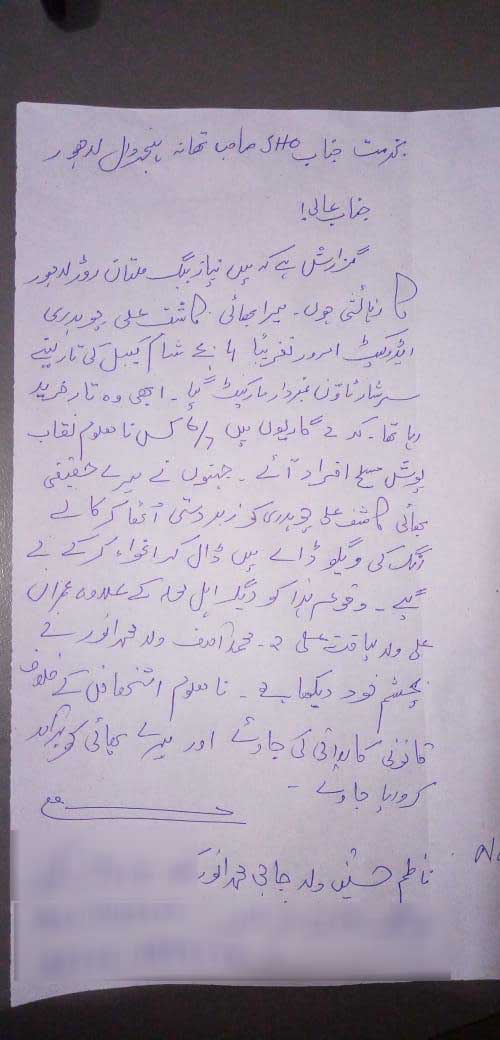 بخدمت جناب SHO صاحب تھانہ ہنجروال لاہور
جناب عالی!
گزارش ہے کہ میں نیاز بیگ ملتان روڈ لاہور
کا رہائشی ہوں۔ میرا بھائی کاشف علی چوہدری
ایڈووکیٹ امروز تقریباً 4 بجے شام کیبل کی تار لینے
سرشار ٹاؤن نمبردار مارکیٹ گیا۔ ابھی وہ تار خرید
رہا تھا۔ کہ 2 گاڑیوں میں 6/7 کس نا معلوم نقاب
پوش مسلح افراد آئے۔ جنہوں نے میرے حقیقی
بھائی کاشف علی چوہدری کو زبردستی اٹھا کر کالے
رنگ کی ویگو ڈالے میں ڈال کر اغواء کر کے لے
گیے۔ وقوعہ ہذا کو دیگر اہل محلہ کے علاوہ عمران
علی ولد لیاقت علی 2۔ محمد آصف ولد محمد انور نے
بچشم خود دیکھا ہے۔ نا معلوم اشخاص کے خلاف
قانونی کاروائی کی جاوئے اور میرے بھائی کو برآمد
کروایا جاوئے۔
ناظم حسنین ولد حاجی محمد انور